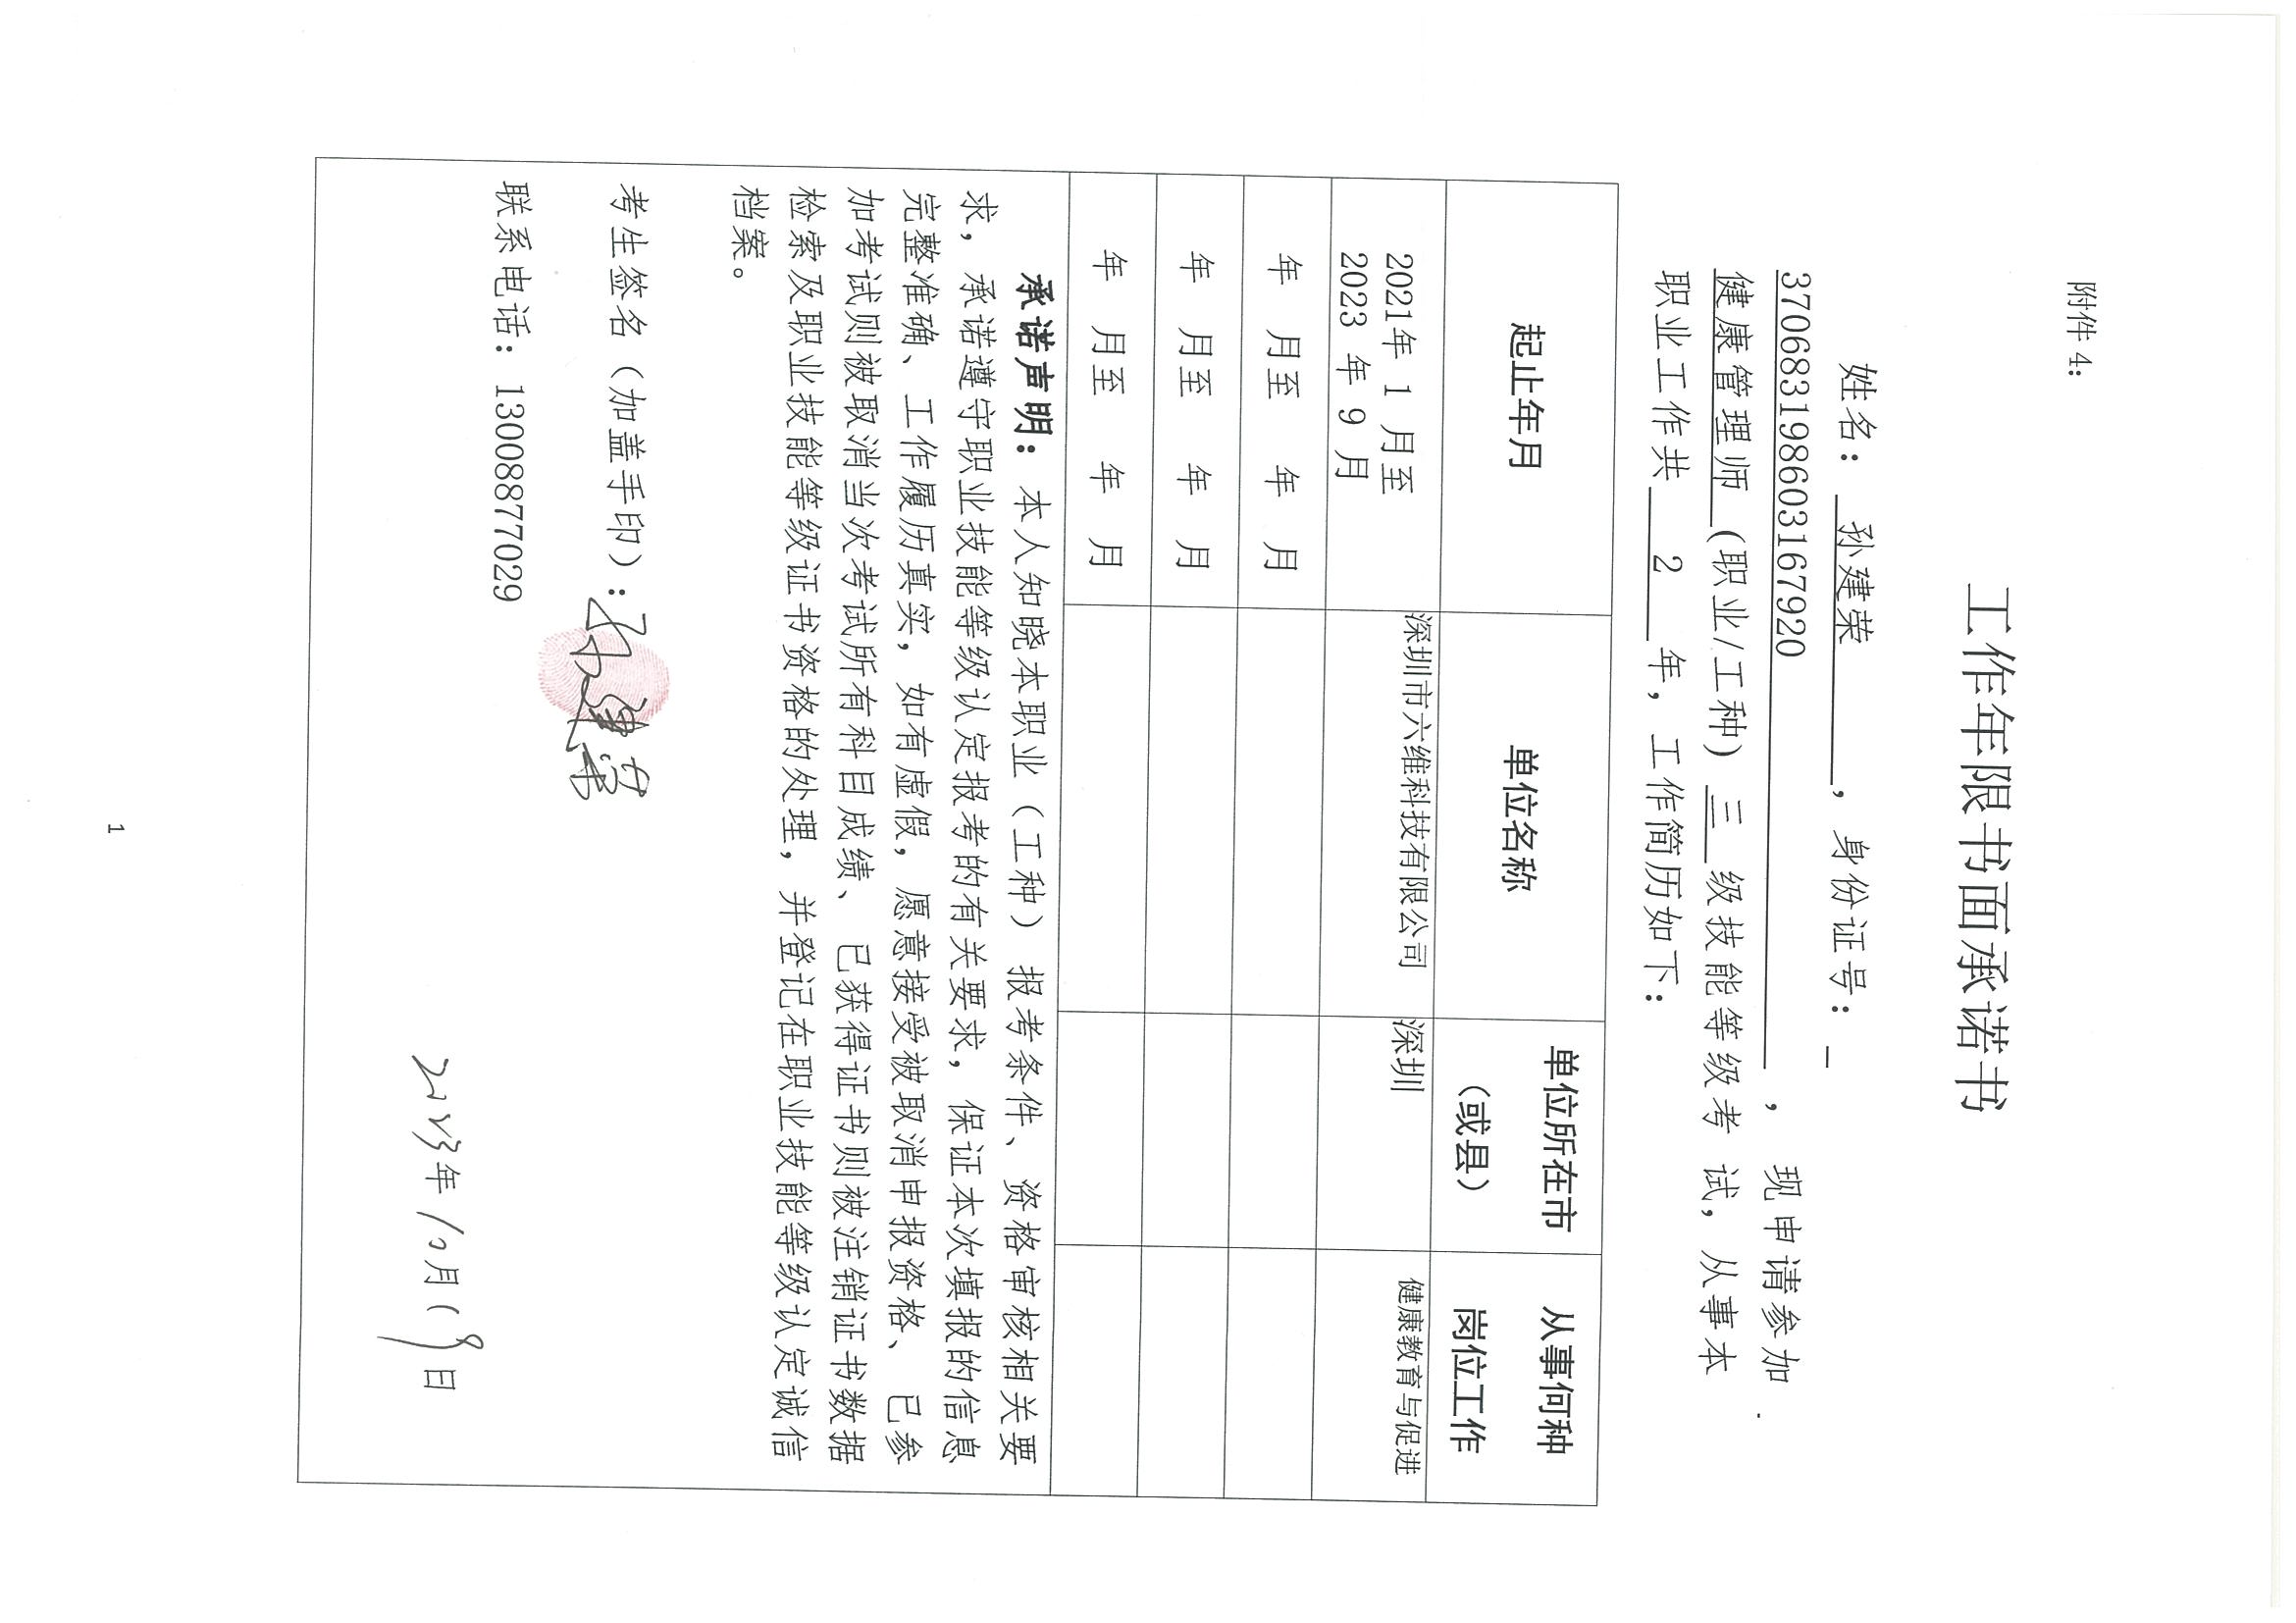 附件 4:
工作年限书面承诺书
姓名： 孙建荣 ，身份证号：
370683198603167920 ，现申请参加
健康管理师（职业/工种）三 级技能等级考 试，从事本
职业工作共 2 年，工作简历如下：
起止年月 单位名称 单位所在市（或县） 从事何种岗位工作
2021年 1 月至 深圳市六维科技有限公司 深圳 健康教育与促进
2023 年 9 月
年 月至 年 月
年 月至 年 月
年 月至 年 月
承诺声明：本人知晓本职业（工种）报考条件、资格审核相关要
求，承诺遵守职业技能等级认定报考的有关要求，保证本次填报的信息
完整准确、工作履历真实，如有虚假，愿意接受被取消申报资格、已参
加考试则被取消当次考试所有科目成绩、已获得证书则被注销证书数据
检索及职业技能等级证书资格的处理，并登记在职业技能等级认定诚信
档案。
考生签名（加盖手印）：孙建荣
联系电话：13008877029
2023年10月19日
1